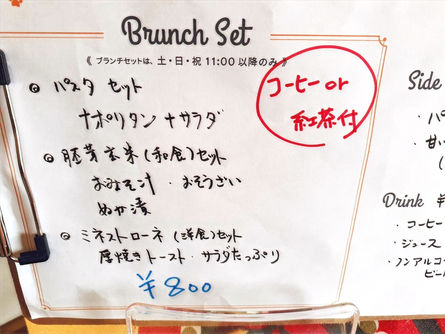 Brunch Set
《 ブランチセットは、土・日・祝 11:00 以降のみ 》
◎ パスタ セット
ナポリタン + サラダ
コーヒー or
紅茶付
◎ 胚芽玄米 (和食) セット
おみそ汁 ・ おそうざい
ぬか漬
◎ ミネストローネ (洋食) セット
厚焼きトースト ・ サラダたっぷり
¥800
Side
・パ
・甘い
(
Drink ¥
・コーヒー
・ジュース
・ノンアルコ
ビー